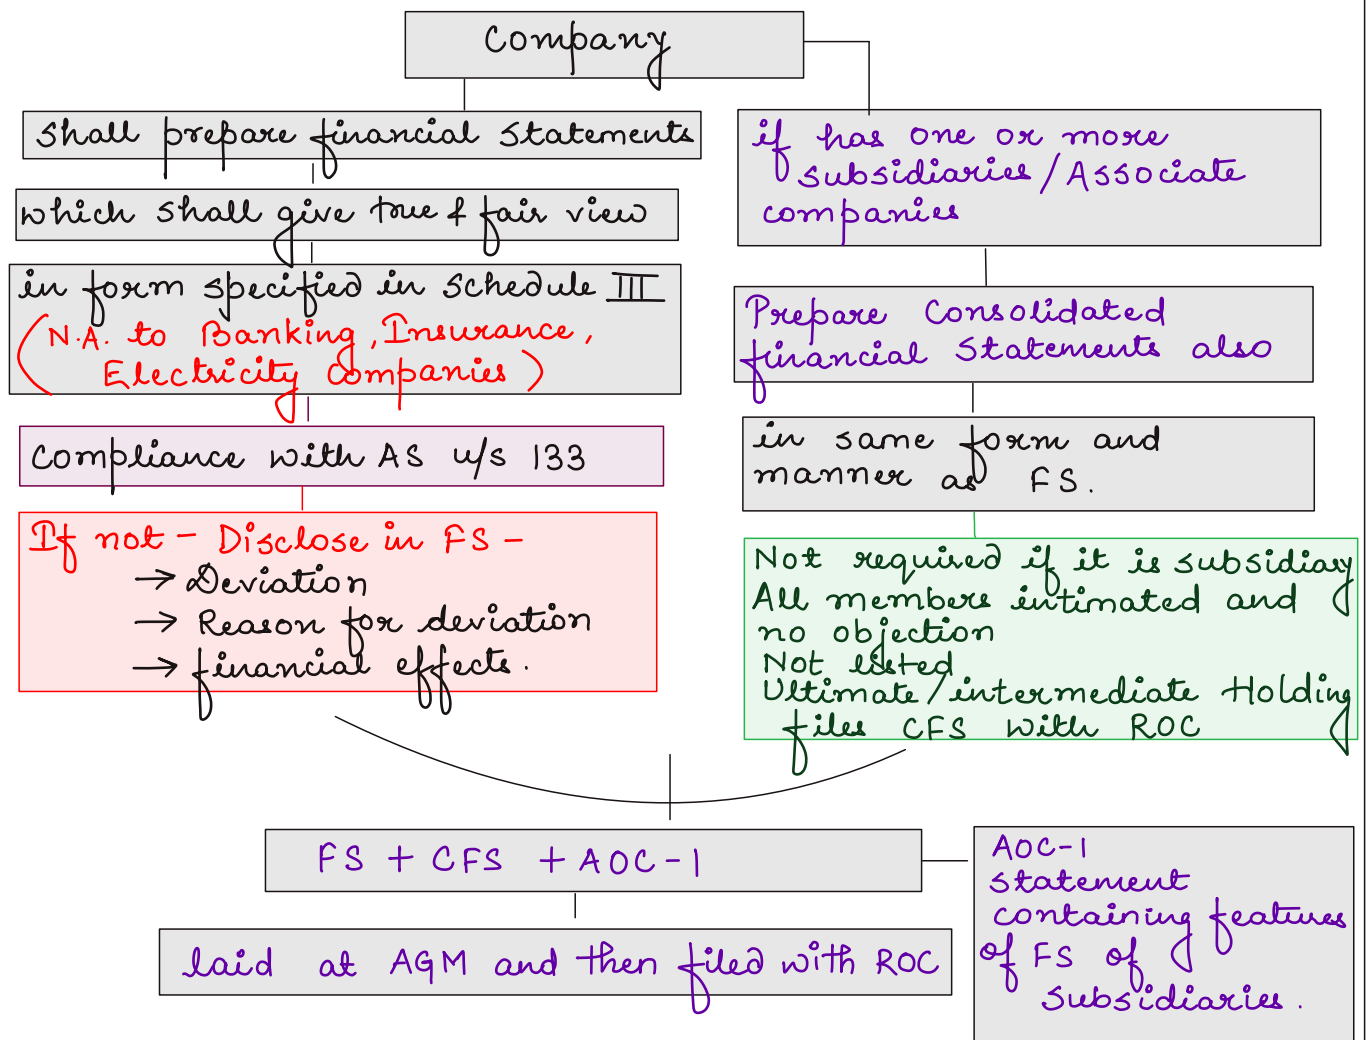 Company
shall prepare financial statements
which shall give true & fair view
in form specified in schedule III
(N.A. to Banking, Insurance,
Electricity companies)
Compliance with AS u/s 133
If not - Disclose in FS -
→ Deviation
→ Reason for deviation
→ financial effects.
if has one or more
subsidiaries/Associate
companies
Prepare Consolidated
financial statements also
in same form and
manner as FS.
Not required if it is subsidiary
All members intimated and
no objection
Not listed
Ultimate/intermediate Holding
files CFS with ROC
FS + CFS + AOC-1
laid at AGM and then filed with ROC
AOC-1
statement
containing features
of FS of
subsidiaries.